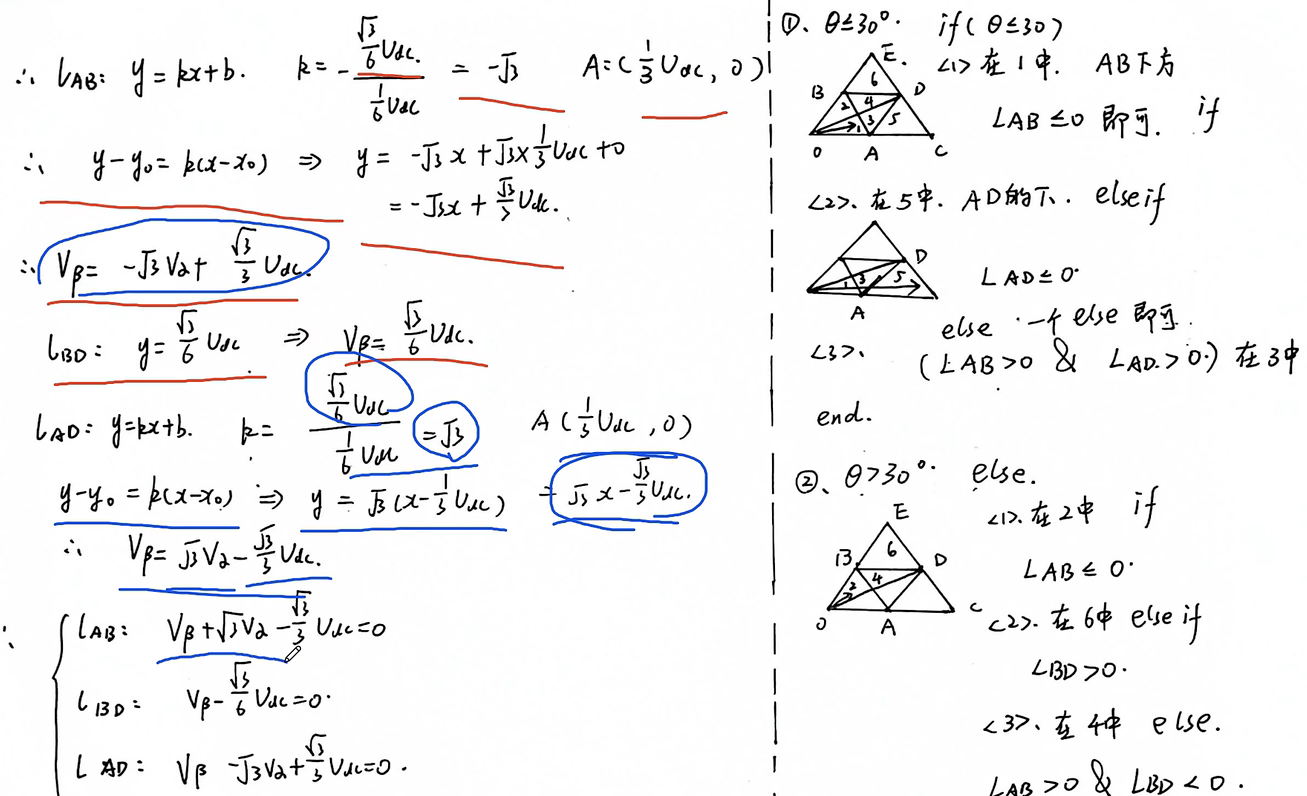 ∴ L_AB: y = kx+b. k = -(√3/6 Udc.)/(1/6 Udc) = -√3 A=(1/3 Udc, 0)
∴ y-y₀ = k(x-x₀) ⇒ y = -√3 x + √3 × 1/3 Udc + 0
= -√3x + √3/3 Udc.
∴ Vβ = -√3 Vα + √3/3 Udc.
L_BD: y = √3/6 Udc ⇒ Vβ = √3/6 Udc.
L_AD: y=kx+b. k = (√3/6 Udc)/(1/6 Udc) = √3 A (1/3 Udc, 0)
y-y₀ = k(x-x₀) ⇒ y = √3 (x - 1/3 Udc) = √3 x - √3/3 Udc.
∴ Vβ = √3 Vα - √3/3 Udc.
∴ { L_AB: Vβ + √3 Vα - √3/3 Udc = 0
L_BD: Vβ - √3/6 Udc = 0.
L AD: Vβ - √3 Vα + √3/3 Udc = 0.
①、θ≤30°. if(θ≤30)
E. B D O A C 1 2 3 4 5 6
<1> 在1中. AB下方
LAB ≤0 即可. if
<2>. 在5中. AD的下. else if
D A 1 3 5
LAD ≤ 0.
else 一个 else 即可.
<3>. (LAB>0 & LAD.>0.) 在3中
end.
②、θ>30°. else.
E B D O A C 2 4 6
<1>. 在2中 if
LAB ≤ 0.
<2>. 在6中 else if
LBD >0.
<3>、在4中 else.
LAB >0 & LBD <0.